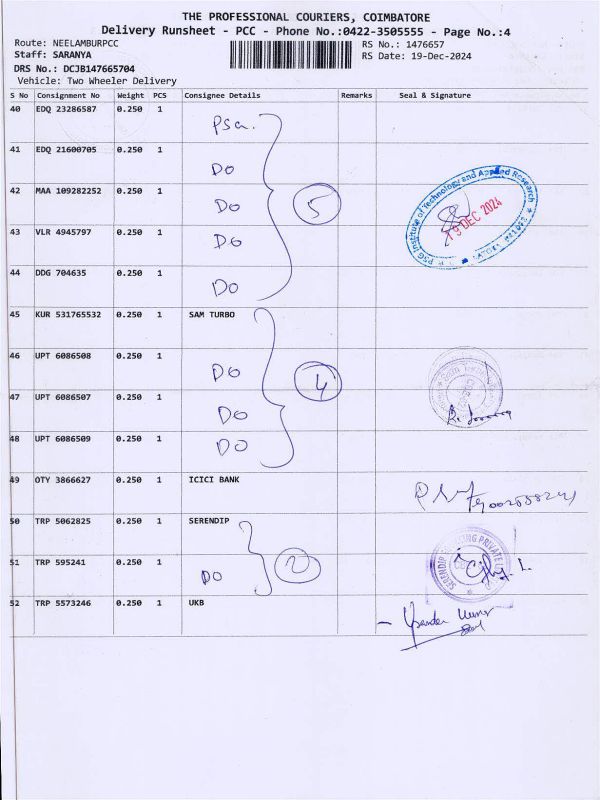 THE PROFESSIONAL COURIERS, COIMBATORE
Delivery Runsheet - PCC - Phone No.:0422-3505555 - Page No.:4
Route: NEELAMBURPCC
RS No.: 1476657
Staff: SARANYA
RS Date: 19-Dec-2024
DRS No.: DCJB147665704
Vehicle: Two Wheeler Delivery
S No Consignment No Weight PCS Consignee Details Remarks Seal & Signature
40 EDQ 23286587 0.250 1 PSG.
41 EDQ 21600705 0.250 1 DO
42 MAA 109282252 0.250 1 DO 5
PSG Institute of Technology and Applied Research
19 DEC 2024
43 VLR 4945797 0.250 1 DO
44 DDG 704635 0.250 1 DO
45 KUR 531765532 0.250 1 SAM TURBO
46 UPT 6086508 0.250 1 DO 4
47 UPT 6086507 0.250 1 DO
48 UPT 6086509 0.250 1 DO
49 OTY 3866627 0.250 1 ICICI BANK
50 TRP 5062825 0.250 1 SERENDIP
51 TRP 595241 0.250 1 DO 2
SERENDIP PRIVATE
52 TRP 5573246 0.250 1 UKB